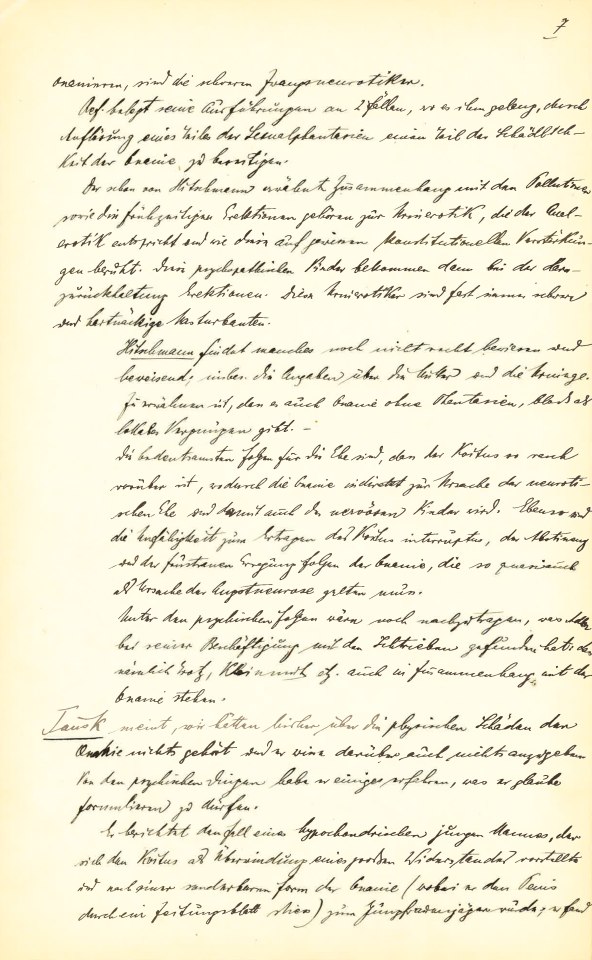 7
onanieren, sind die schweren Zwangsneurotiker.
Ref. belegt seine Ausführungen an 2 Fällen, wo es ihm gelang, durch
Auflösung eines Teiles der Sexualphantasien einen Teil der Schädlich-
keit der Onanie zu beseitigen.
Der schon von Hitschmann erwähnte Zusammenhang mit den Pollutionen
sowie die frühzeitigen Erektionen gehören zur Urinerotik, die der Anal-
erotik entspricht und wie diese auf gewissen konstitutionellen Verstärkun-
gen beruht. Diese psychopathischen Kinder bekommen dann bei der Harn-
zurückhaltung Erektionen. Diese Urinerotiker sind fast immer schwere
und hartnäckige Masturbanten.
Hitschmann findet manches noch nicht recht bewiesen und
beweisend; insbes. die Angaben über die und die
Zu erwähnen ist, dass es auch Onanie ohne Phantasien, bloß als
lokales Vergnügen gibt. –
Die bedeutsamsten Folgen für die Ehe sind, dass der Koitus so rasch
vorüber ist, wodurch die Onanie indirekt zur Ursache der neuroti-
schen Ehe und damit auch der nervösen Kinder wird. Ebenso wird
die Unfähigkeit zum Ertragen des Koitus interruptus, der Abstinenz
und der frustranen Erregung Folgen der Onanie, die so quasi auch
als Ursache der Angstneurose gelten muss.
Unter den psychischen Folgen wäre noch nachzutragen, was Adler
bei seiner Beschäftigung mit den gefunden hat: dass
nämlich Trotz, Kleinmut etz. auch in Zusammenhang mit der
Onanie stehen.
Tausk meint, wir hätten bisher über die physischen Schäden der
Onanie nichts gehört und er wisse darüber auch nichts anzugeben
Von den psychischen Dingen habe er einiges erfahren, was er glaube
formulieren zu dürfen.
Er berichtet den Fall eines hypochondrischen jungen Mannes, der
sich den Koitus als Überwindung eines großen Widerstandes vorstellte
und nach einer sonderbaren Form der Onanie (wobei er den Penis
durch ein Zeitungsblatt stiess) zum Jungfrauenjäger wurde; er fand